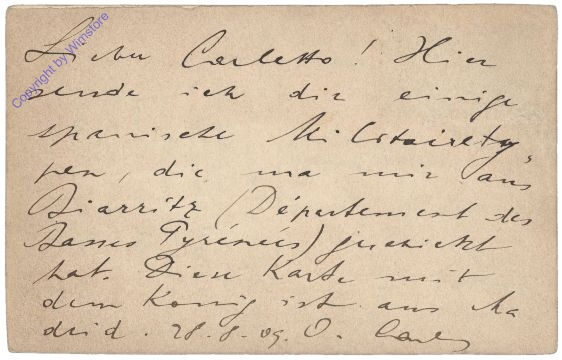 Lieber Carletto! Hier
sende ich dir einige
spanische Militairety"
pen, die ma mir aus
Biarritz (Département des
Basses Pyrénées) geschickt
hat. Diese Karte mit
dem König ist aus Ma
drid. 28.8.09. O. Carlo
Copyright by Wimstore